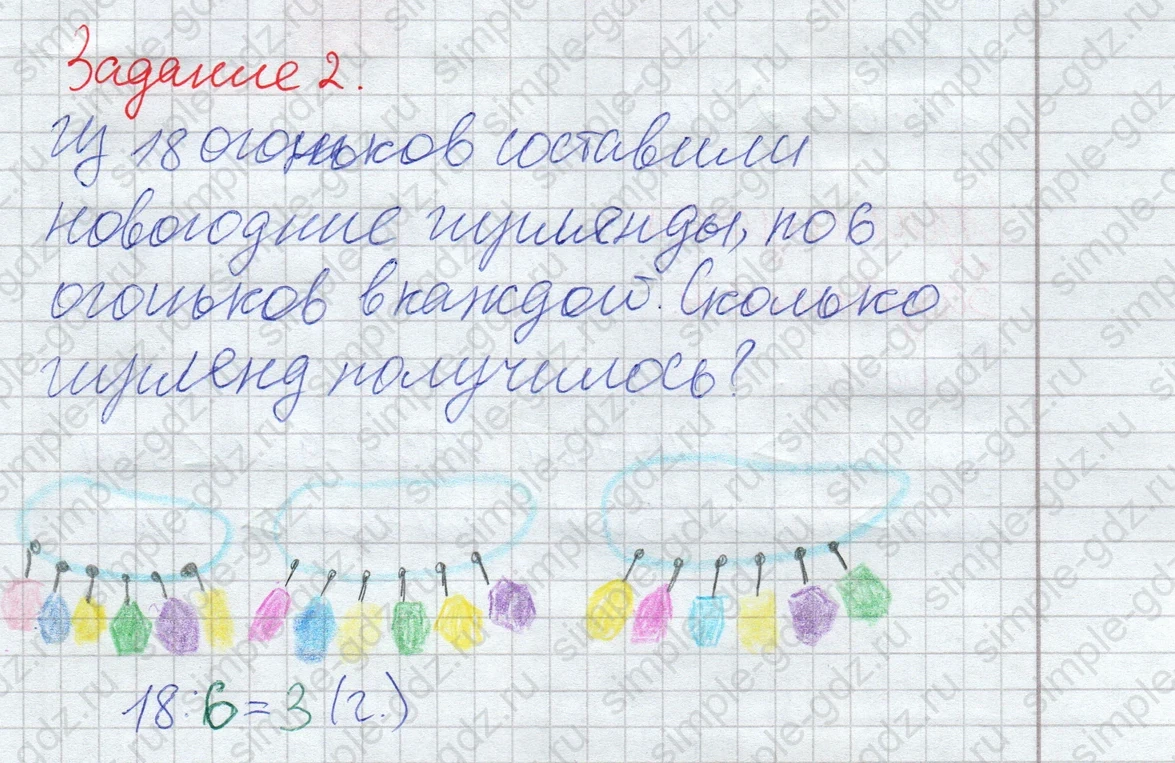 Задание 2.
Из 18 огоньков составили
новогодние гирлянды, по 6
огоньков в каждой. Сколько
гирлянд получилось?
18:6=3 (г.)
simple-gdz.ru